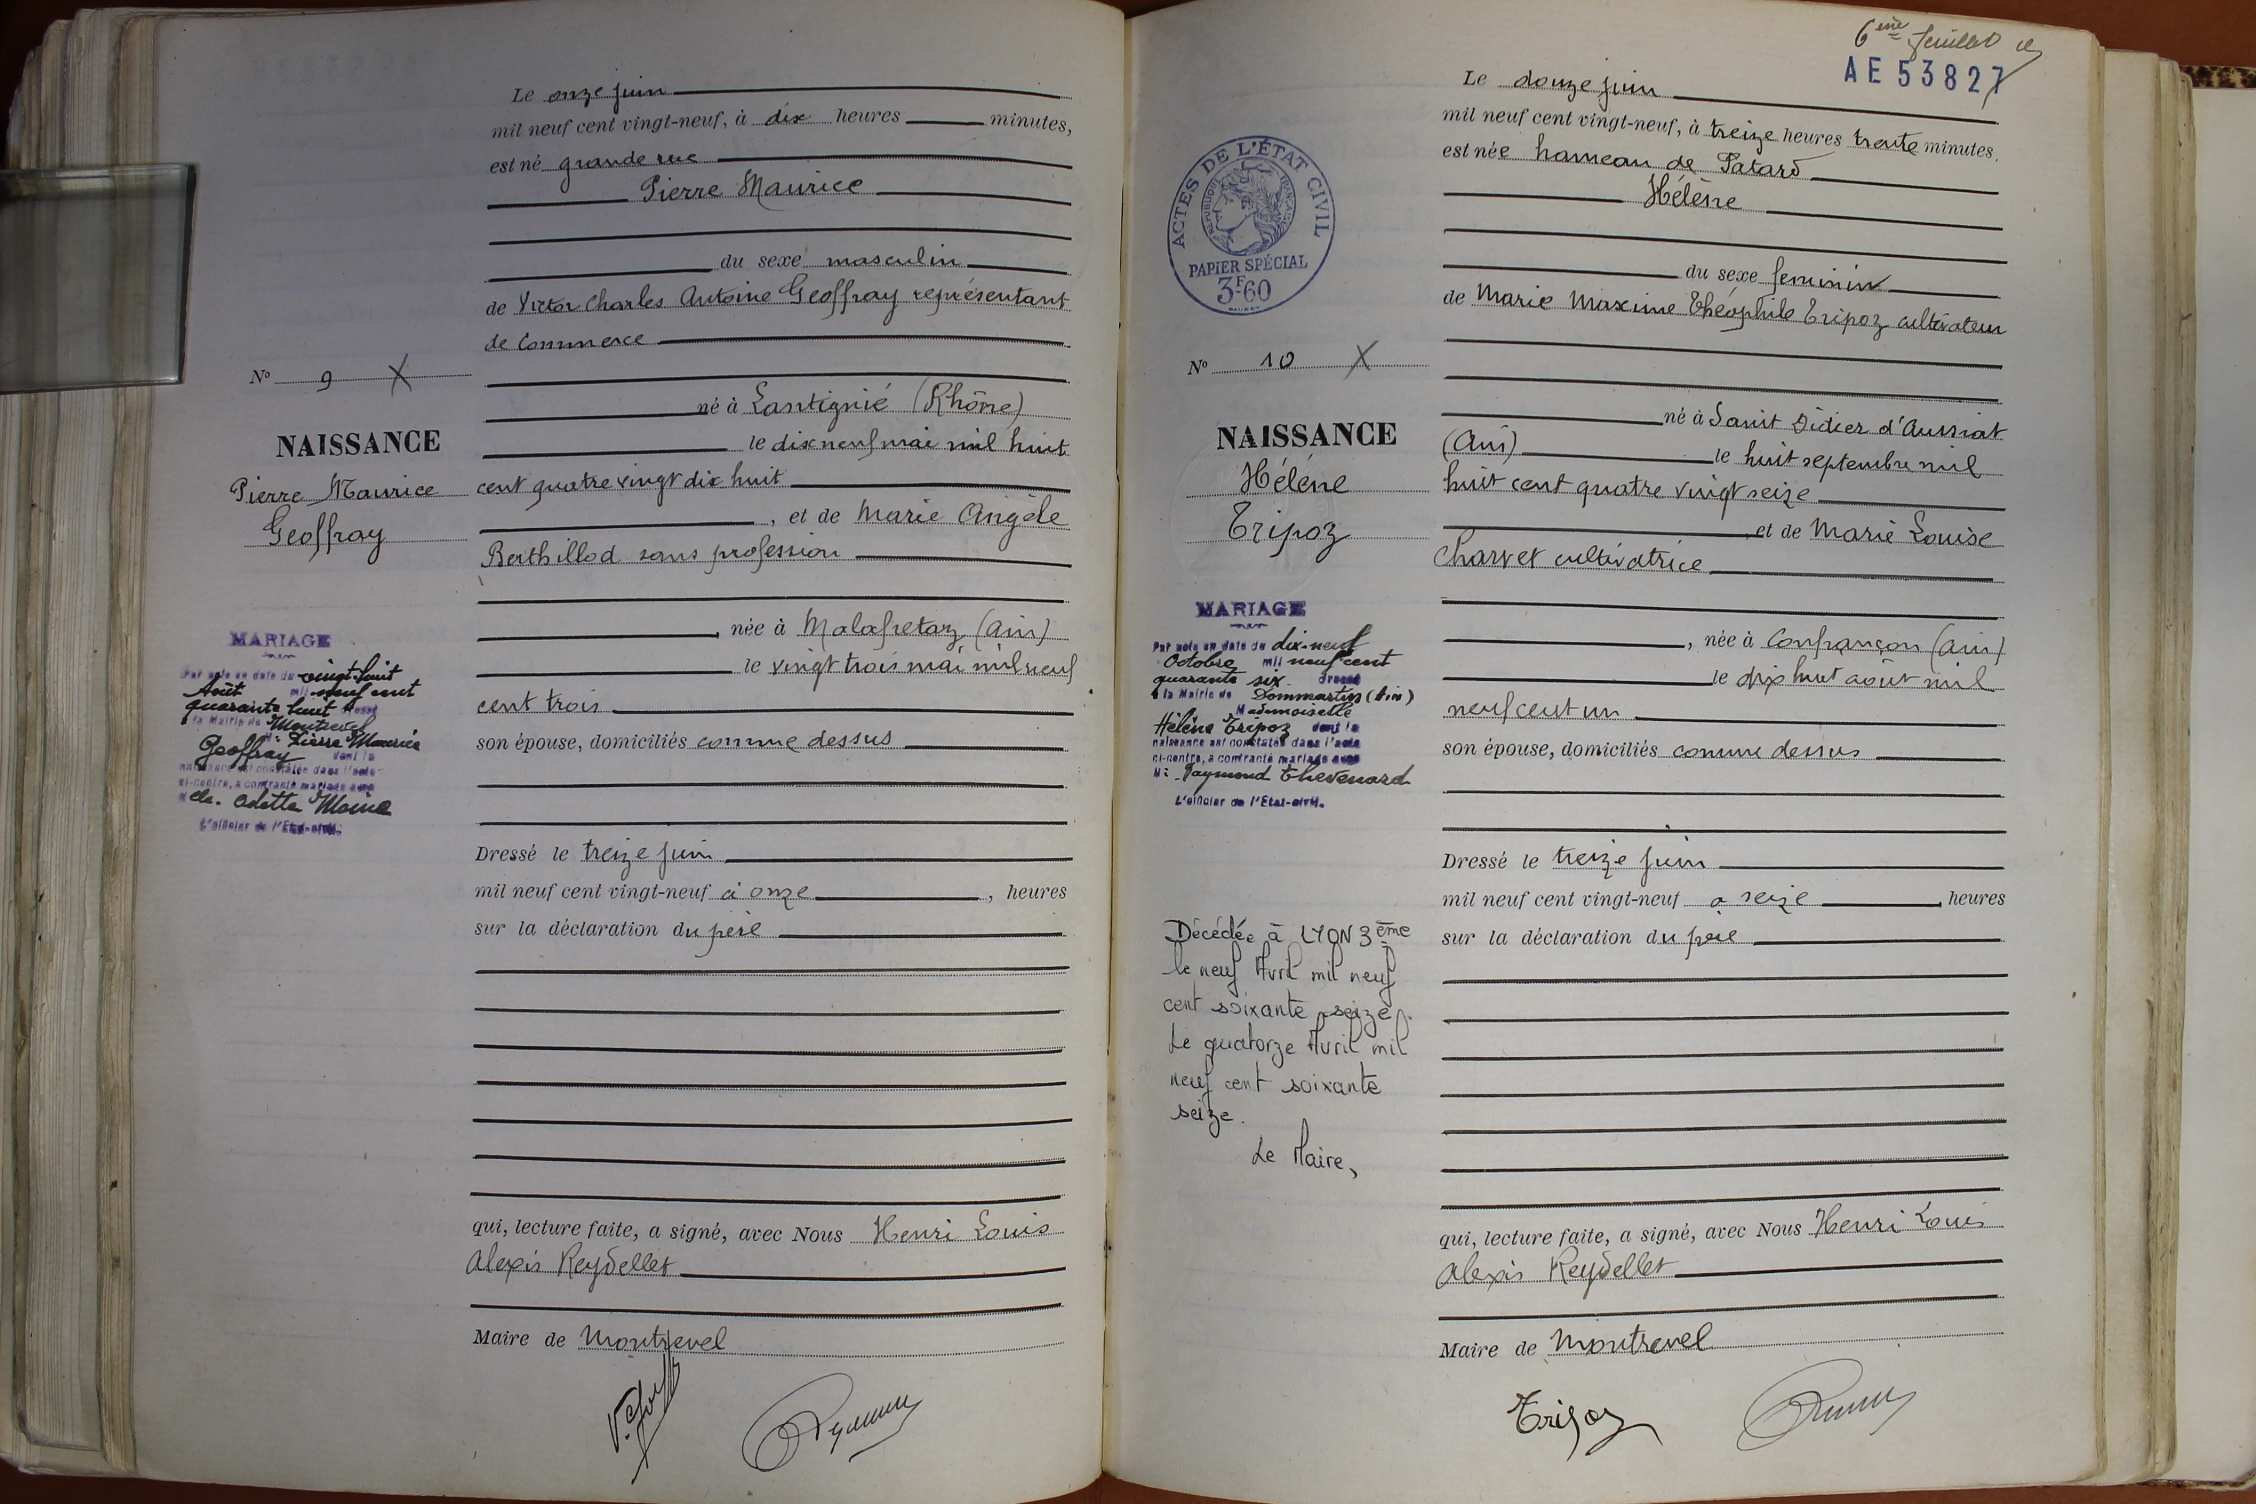 Le onze juin
mil neuf cent vingt-neuf, à dix heures minutes,
est né grande rue
Pierre Maurice
du sexe masculin
de Victor Charles Antoine Geoffray représentant
de Commerce
né à Lantignié (Rhône)
le dix neuf mai mil huit
cent quatre vingt dix huit
, et de Marie Angèle
Berthillod sans profession
, née à Malafretaz (Ain)
le vingt trois mai mil neuf
cent trois
son épouse, domiciliés comme dessus
Dressé le treize juin
mil neuf cent vingt-neuf à onze , heures
sur la déclaration du père
qui, lecture faite, a signé, avec Nous Henri Louis
Alexis Reydellet
Maire de Montrevel
No 9 X
NAISSANCE
Pierre Maurice
Geoffray
MARIAGE
Par acte en date du vingt-huit
Août mil neuf cent
quarante huit dressé
à la Mairie de Montrevel
M: Pierre Maurice
Geoffray dont la
naissance est constatée dans l'acte
ci-contre, a contracté mariage avec
Melle. Odette Moine
L'officier de l'Etat-civil.
6ème feuillet
AE 53827
Le douze juin
mil neuf cent vingt-neuf, à treize heures trente minutes.
est née hameau de Patard
Hélène
du sexe feminin
de Marie Maxime Théophile Tripoz cultivateur
né à Saint Didier d'Aussiat
(Ain) le huit septembre mil
huit cent quatre vingt seize
et de Marie Louise
Charvet cultivatrice
, née à Confrançon (Ain)
le dix huit août mil
neuf cent un
son épouse, domiciliés comme dessus
Dressé le treize juin
mil neuf cent vingt-neuf à seize , heures
sur la déclaration du père
qui, lecture faite, a signé, avec Nous Henri Louis
Alexis Reydellet
Maire de Montrevel
Tripoz
ACTES DE L'ÉTAT CIVIL
RÉPUBLIQUE FRANÇAISE
PAPIER SPÉCIAL
3F60
No 10 X
NAISSANCE
Hélène
Tripoz
MARIAGE
Par acte en date du dix-neuf
Octobre mil neuf cent
quarante six dressé
à la Mairie de Dommartin (Ain)
Mademoiselle
Hélène Tripoz dont la
naissance est constatée dans l'acte
ci-contre, a contracté mariage avec
M: Raymond Thevenard
L'officier de l'Etat-civil.
Décédée à LYON 3ème
le neuf Avril mil neuf
cent soixante seize.
Le quatorze Avril mil
neuf cent soixante
seize.
Le Maire,